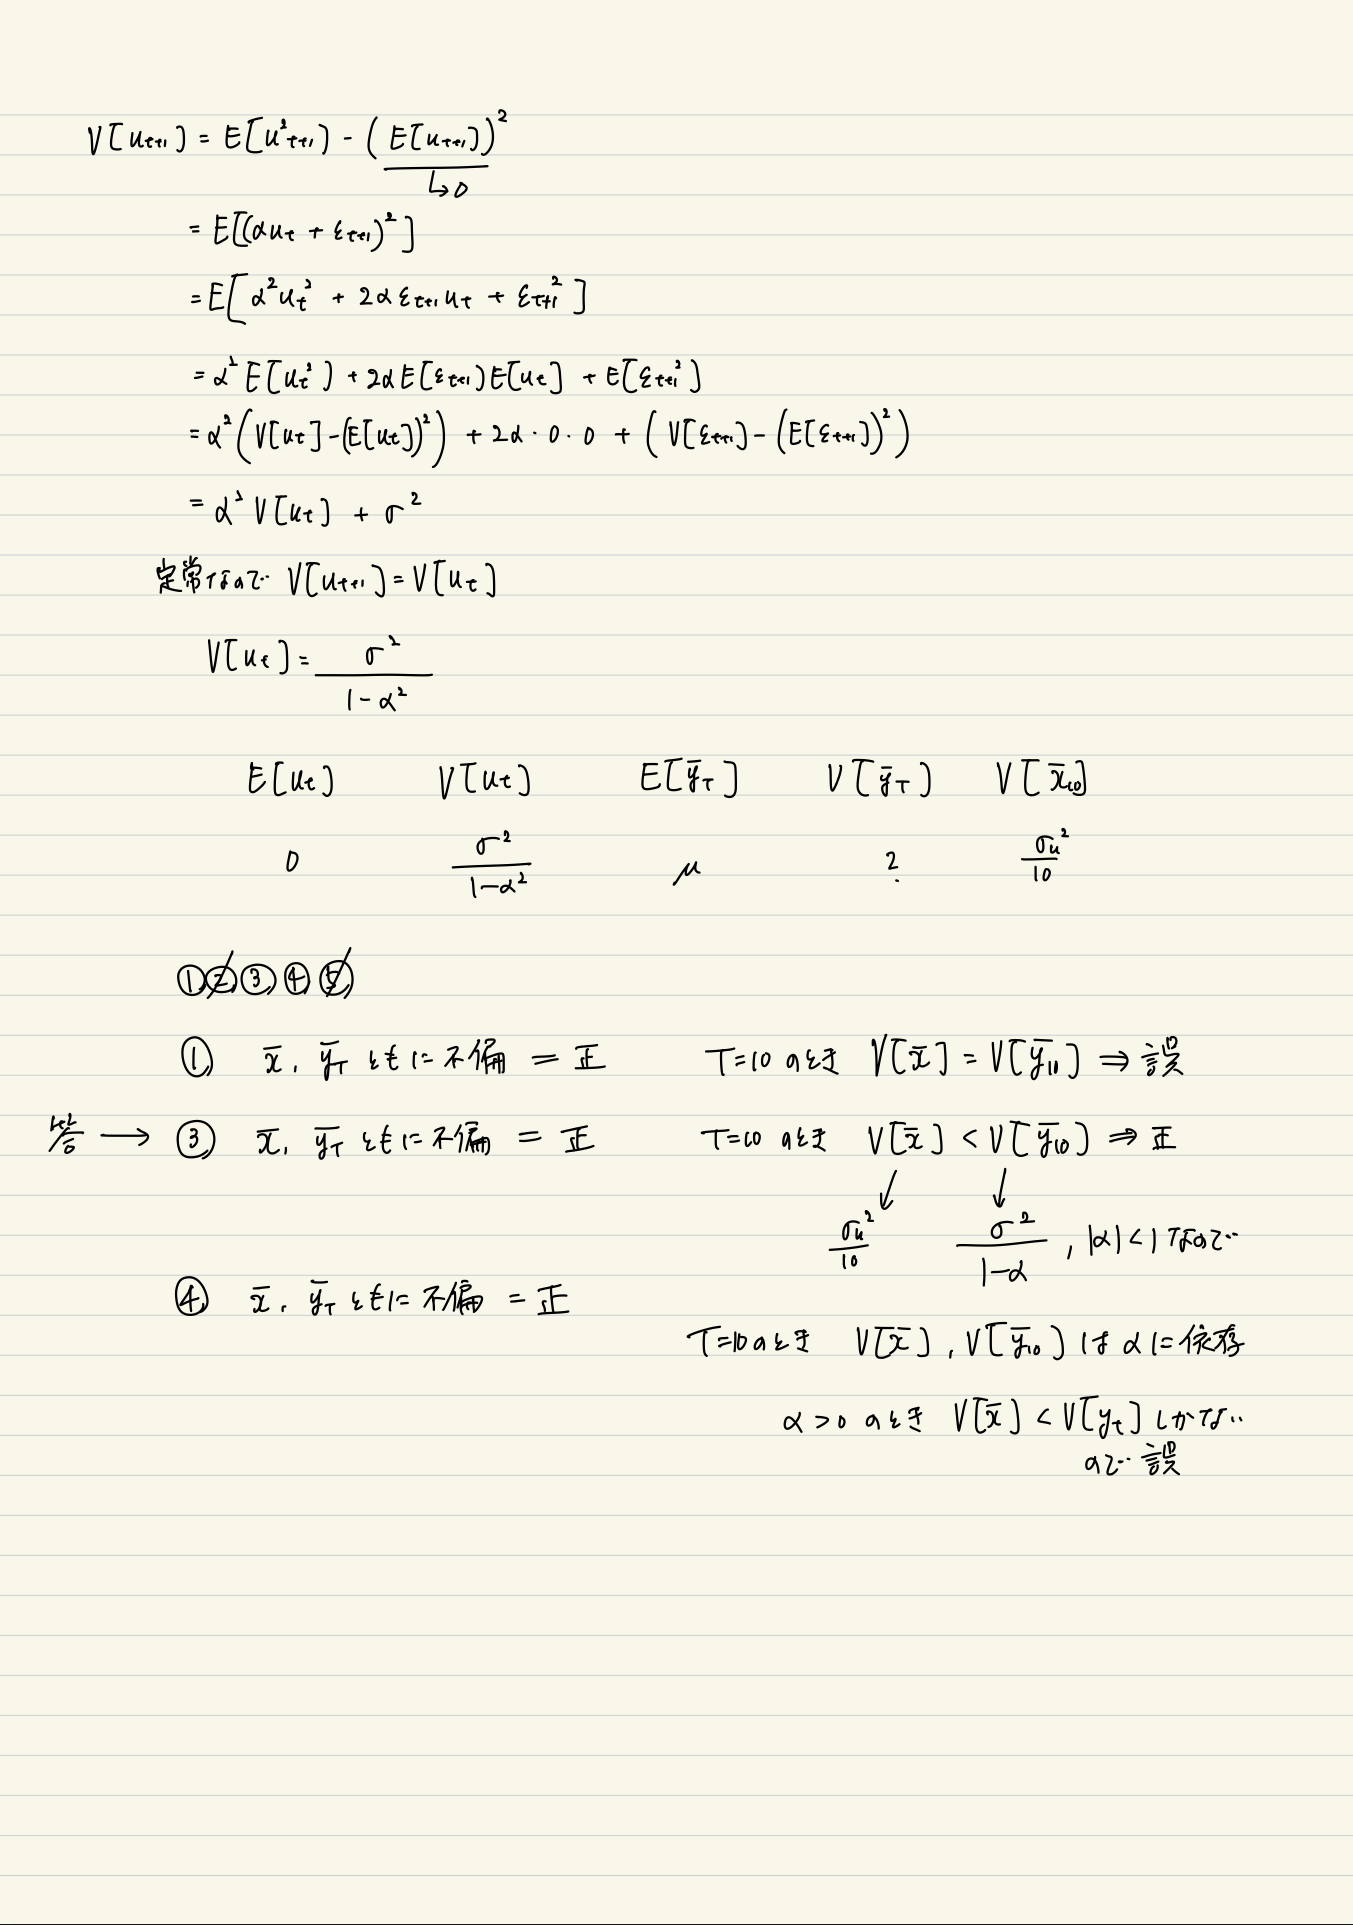 V[u_{t+1}] = E[u²_{t+1}] - (E[u_{t+1}])²
↳ 0
= E[(αu_t + ε_{t+1})²]
= E[α²u_t² + 2αε_{t+1}u_t + ε_{t+1}²]
= α²E[u_t²] + 2αE[ε_{t+1}]E[u_t] + E[ε_{t+1}²]
= α²(V[u_t] - (E[u_t])²) + 2α・0・0 + (V[ε_{t+1}] - (E[ε_{t+1}])²)
= α²V[u_t] + σ²
定常なので V[u_{t+1}] = V[u_t]
V[u_t] = σ² / (1-α²)
E[u_t] V[u_t] E[ȳ_T] V[ȳ_T] V[x̄_{10}]
0 σ²/(1-α²) μ ? σ_u²/10
① ② ③ ④ ⑤
① x̄, ȳ_T ともに不偏 = 正 T=10 のとき V[x̄] = V[ȳ_{10}] ⇒ 誤
答 → ③ x̄, ȳ_T ともに不偏 = 正 T=10 のとき V[x̄] < V[ȳ_{10}] ⇒ 正
↙ ↓
σ_u²/10 σ²/(1-α) , |α|<1 なので
④ x̄, ȳ_T ともに不偏 = 正
T=10のとき V[x̄], V[ȳ_{10}] は αに依存
α>0 のとき V[x̄] < V[y_t] しかない
ので 誤